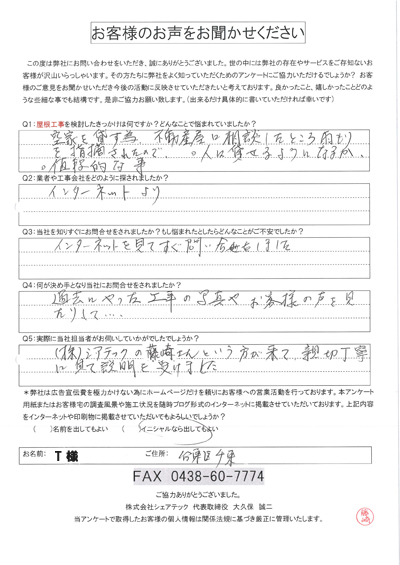 お客様のお声をお聞かせください
この度は弊社にお問い合わせをいただき、誠にありがとうございました。世の中には弊社の存在やサービスをご存知ないお
客様が沢山いらっしゃいます。その方たちに弊社をよく知っていただくためのアンケートにご協力いただけるでしょうか？ お客
様のご意見をお聞かせいただき今後の活動に反映させていただきたいと考えております。良かったこと、嬉しかったことどのよ
うな些細な事でも結構です。是非ご協力お願い致します。（出来るだけ具体的に書いていただければ幸いです）
Q1:屋根工事を検討したきっかけは何ですか？どんなことで悩まれていましたか？
空家を貸す為、不動産屋に相談したところ雨もり
を指摘されたので、 。人に貸せるようになるか、
。値段的な事
Q2:業者や工事会社をどのように探されましたか？
インターネットより
Q3:当社を知りすぐにお問合せをされましたか？もし悩まれたとしたらどんなことがご不安でしたか？
インターネットを見てすぐ問い合わせをしました
Q4:何が決め手となり当社にお問合せをされましたか？
過去にやった工事の写真やお客様の声を見
たりして・・・
Q5:実際に当社担当者がお伺いしていかがでしたでしょうか？
(株)シアテックの藤崎さんという方が来て、親切丁寧
に見て説明を受けました
＊弊社は広告宣伝費を極力かけない為にホームページだけを頼りにお客様への営業活動を行っております。本アンケート
用紙またはお客様宅の調査風景や施工状況を随時ブログ形式のインターネットに掲載させていただいております。上記内容
をインターネットや印刷物に掲載させていただいてもよろしいでしょうか？
（ ）名前を出してもよい （ ）イニシャルなら出してもよい
お名前： T 様 ご住所：
FAX 0438-60-7774
ご協力ありがとうございました。
株式会社シェアテック 代表取締役 大久保 誠二
当アンケートで取得したお客様の個人情報は関係法規に基づき厳正に管理いたします。
藤崎